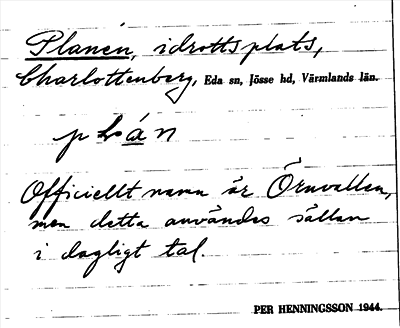 Planen, idrottsplats,
Charlottenberg, Eda sn, Jösse hd, Värmlands län.
Officiellt namn är Örnvallen,
men detta användes sällan
i dagligt tal.
PER HENNINGSSON 1944.